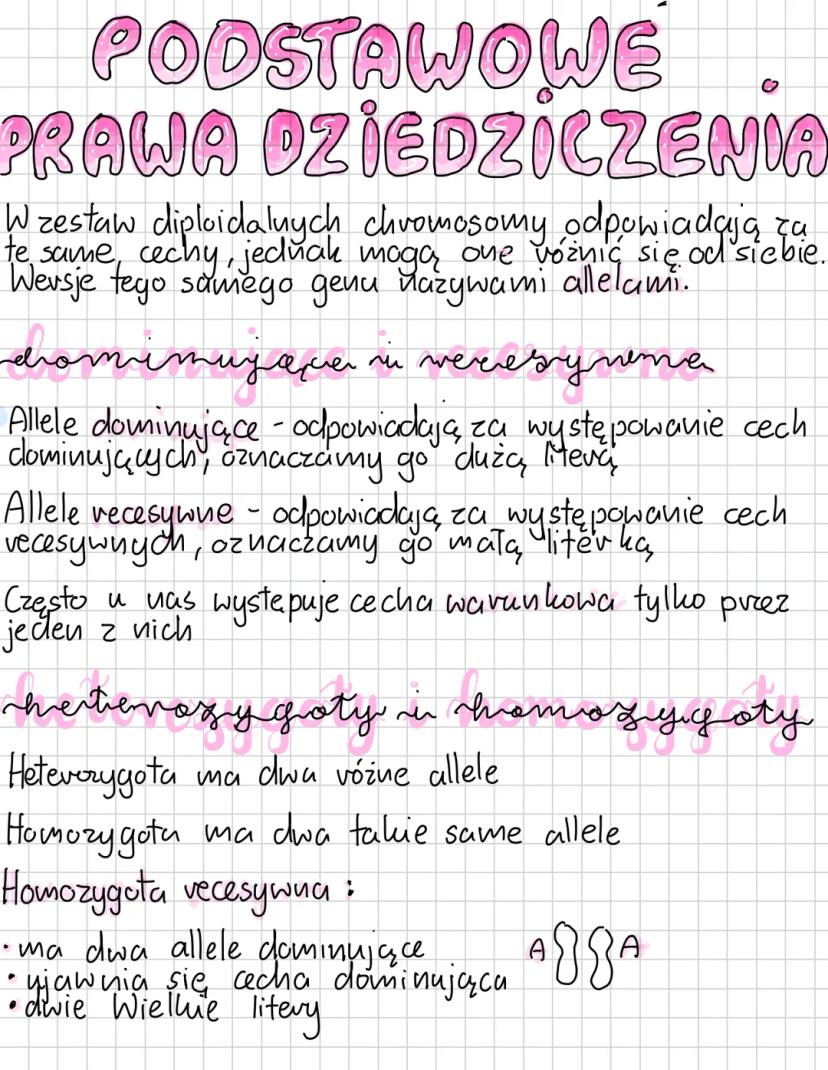 PODSTAWOWE
PRAWA DZIEDZICZENIA
W zestaw diploidalnych chromosomy odpowiadają za
te same cechy, jednak mogą one różnić się od siebie.
Wersje tego samego genu nazywami allelami.
dominujące i recesywne
Allele dominujące - odpowiadają za występowanie cech
dominujących, oznaczamy go dużą literą
Allele recesywne - odpowiadają za występowanie cech
recesywnych, oznaczamy go małą literką
Często u nas wystepuje cecha warunkowa tylko przez
jeden z nich
heterozygoty i homozygoty
Heterozygota ma dwa różne allele
Homozygota ma dwa takie same allele
Homozygota recesywna :
• ma dwa allele dominujące
• ujawnia się cecha dominująca
• dwie Wielkie litery
A A